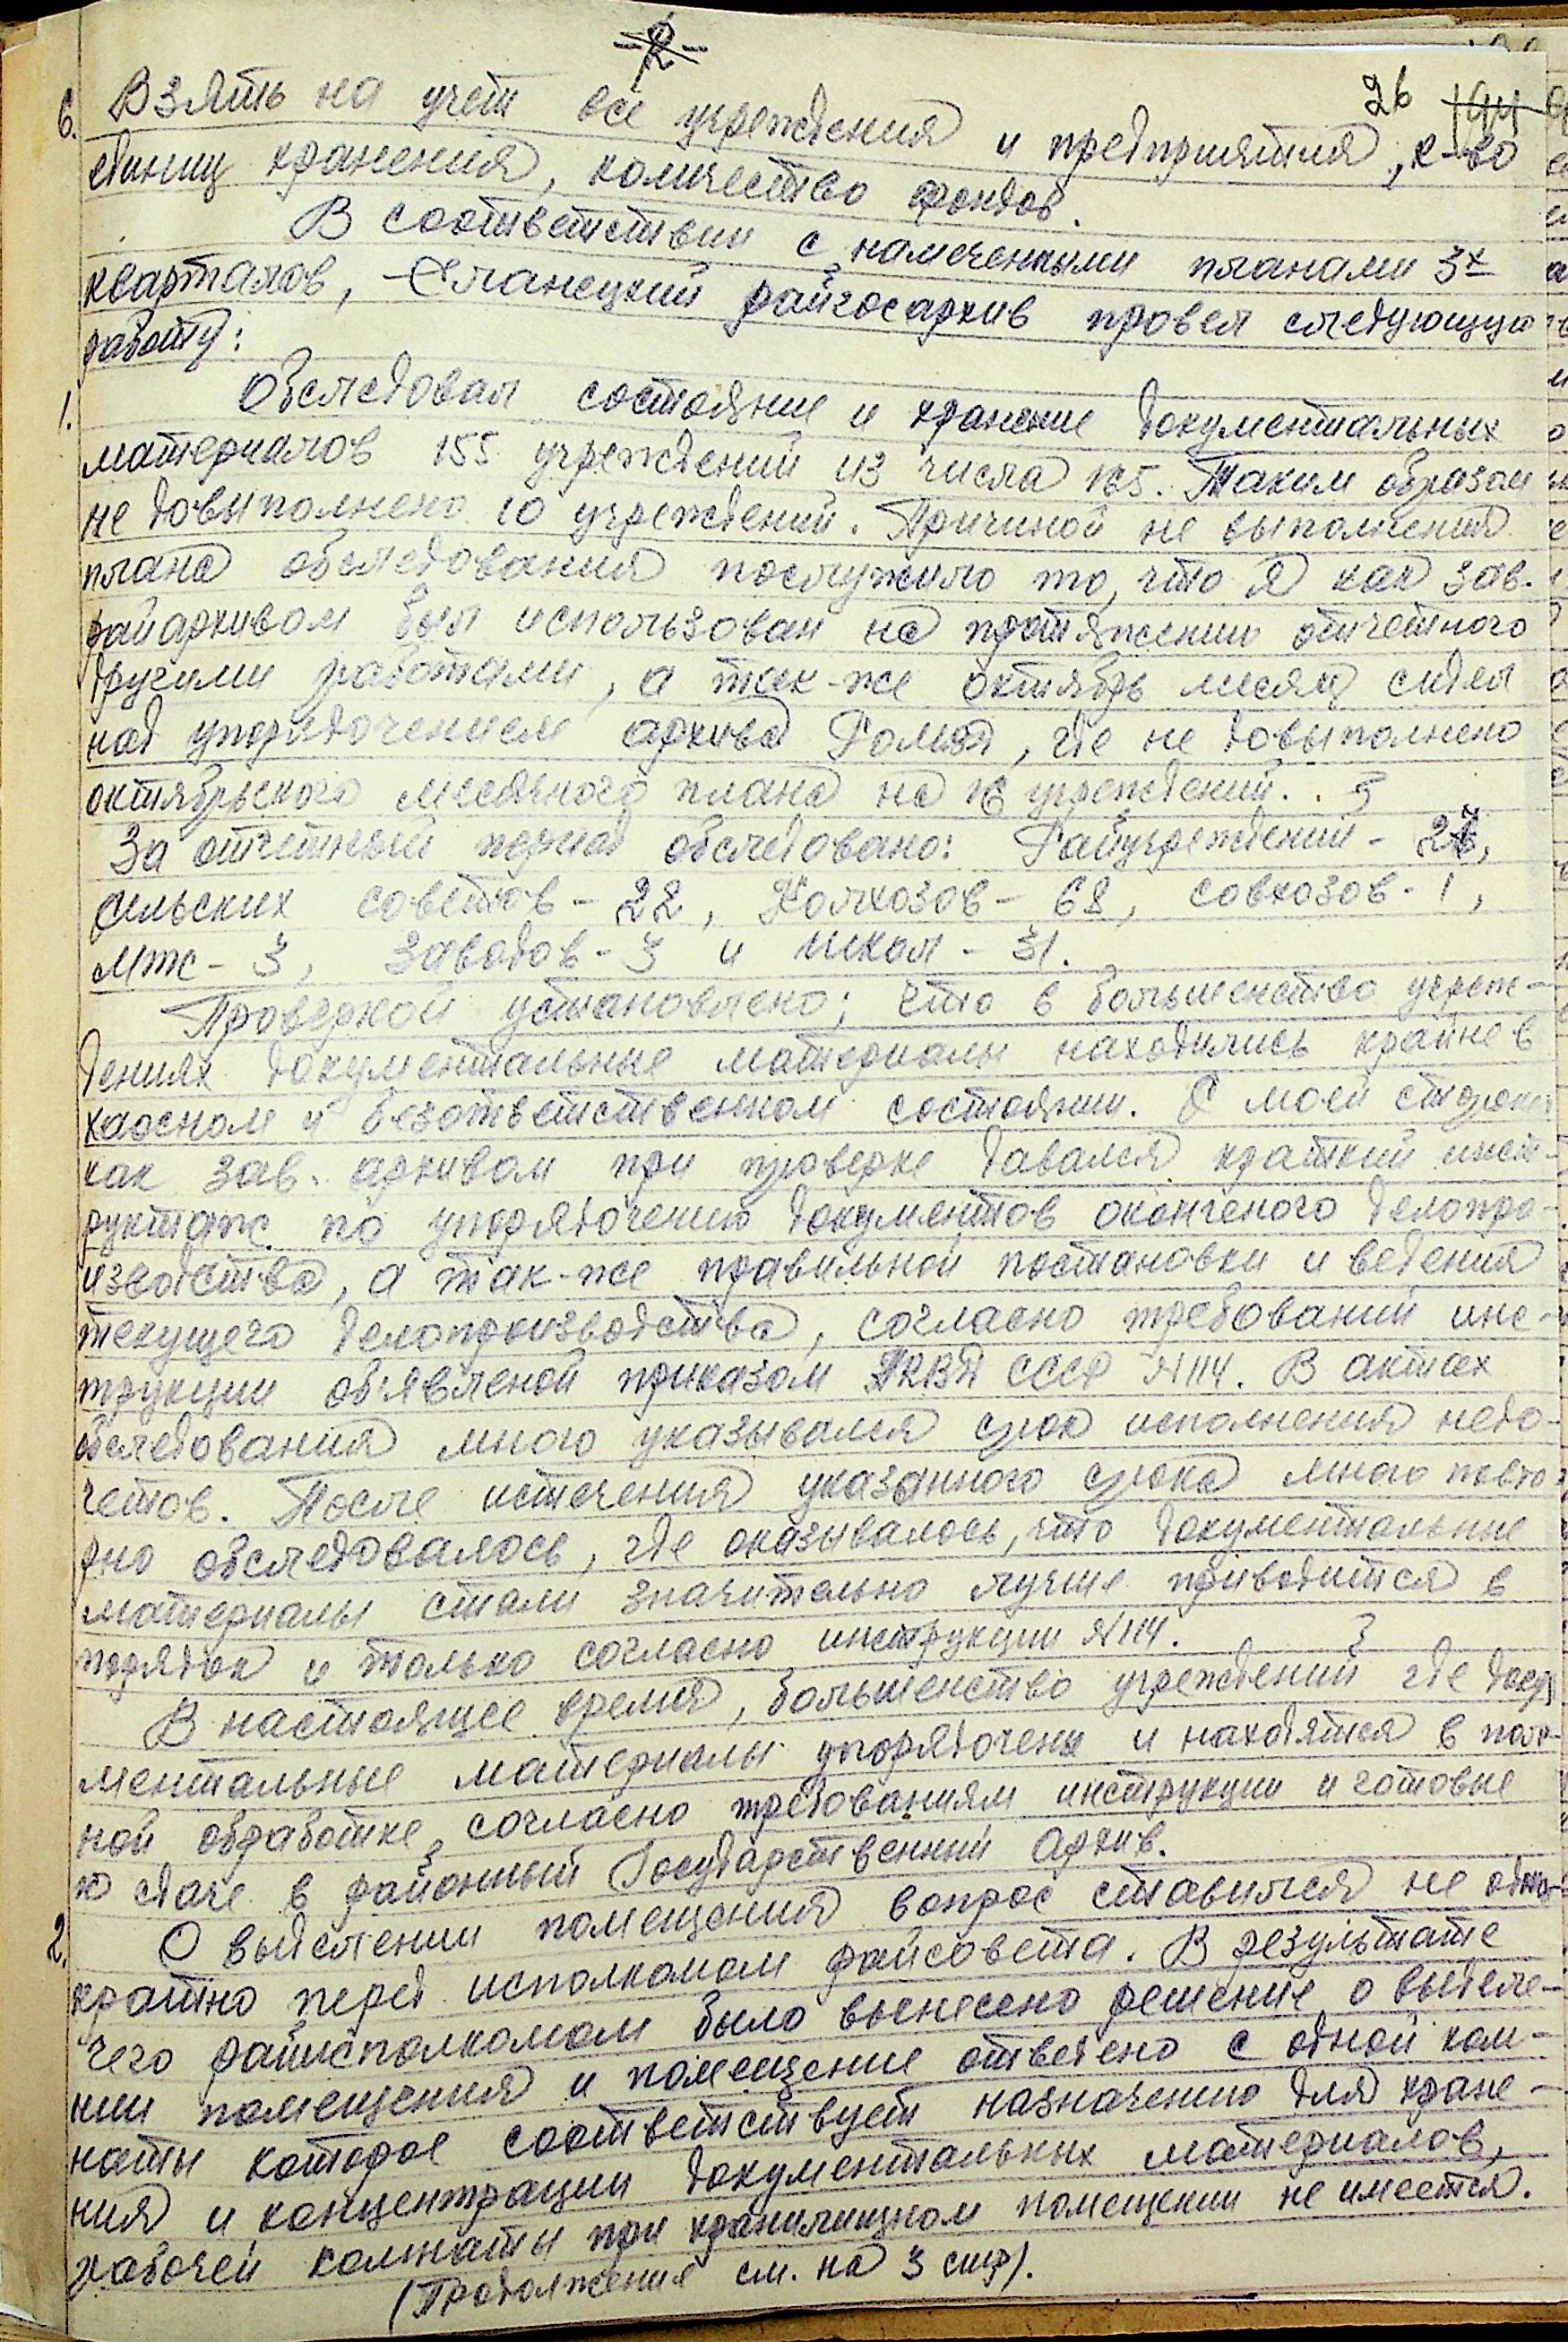 -2-
26 194
6. Взять на учет все учреждения и предприятия, к-во
единиц хранения, количество фондов.
В соответствии с намеченными планами 3х
кварталов, Еланецкий райгосархив провел следующую
работу:
1. Обследовал состояние и хранение документальных
материалов 155 учреждений из числа 165. Таким образом
не довыполнено 10 учреждений. Причиной не выполнения
плана обследования послужило то, что я как зав.
райархивом был использован на протяжении отчетного
другими работами, а так-же октябрь месяц сидел
над упорядочением архива, где не довыполнено
октябрьского месячного плана на 16 учреждений.
За отчетный период обследовано: Райучреждений -
сельских советов - 22, Колхозов - 68, совхозов - 1,
мтс - 3, заводов - 3 и школ - 31.
Проверкой установлено; что в большенство учреж-
дениях документальные материалы находились крайне в
хаосном и безответственном состоянии. С моей стороны
как зав. архивом при проверке давался краткий инст-
руктаж по упорядочению документов оконченого делопро-
изводства, а так-же правильной постановки и ведения
текущего делопроизводства, согласно требований инс-
трукции об'явленой приказом НКВД СССР №114. В актах
обследования мною указывался срок исполнения недо-
четов. После истечения указанного срока мною повто-
рно обследовалось, где оказывалось, что документальные
материалы стали значительно лучше приводится в
порядок и только согласно инструкции №114.
В настоящее время, большенство учреждений где доку-
ментальные материалы упорядочены и находятся в пол-
ной обработке, согласно требованиям инструкции и готовые
к сдаче в районный Государственный Архив.
2. О выделении помещения вопрос ставился не одно-
кратно перед исполкомом райсовета. В результате
чего райисполкомом было вынесено решение о выделе-
нии помещения и помещение отведено с одной ком-
наты которое соответствует назначению для хране-
ния и концентрации документальных материалов,
рабочей комнаты при хранилищном помещении не имеется.
(Продолжения см. на 3 стр).